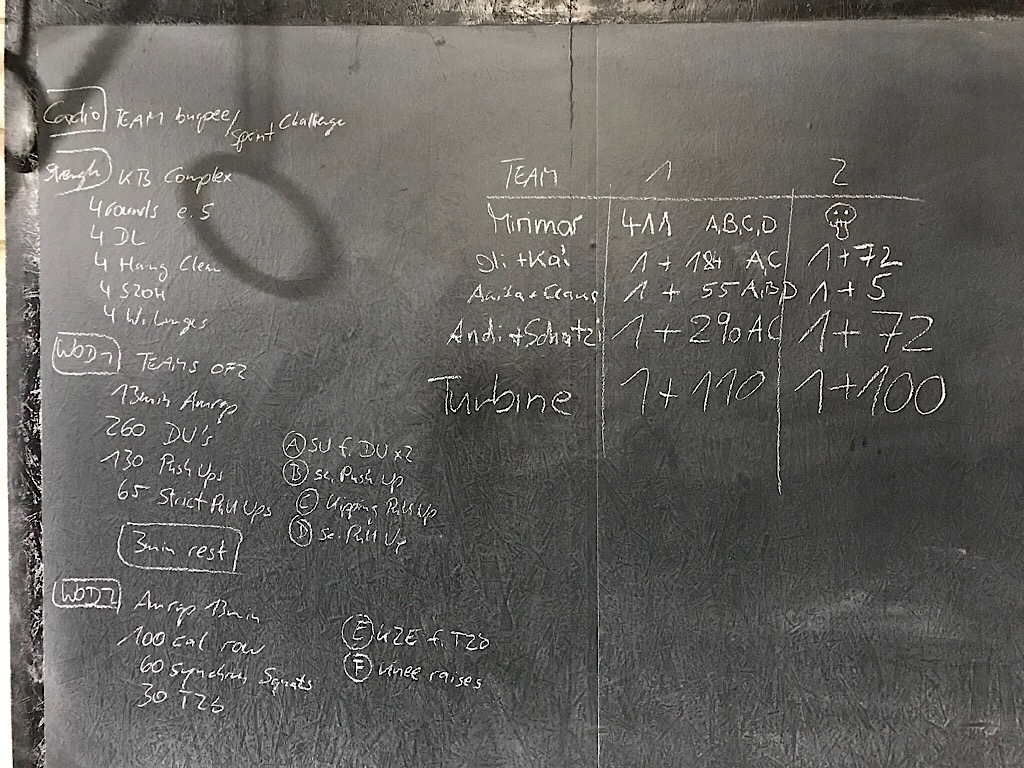 Cardio TEAM burpee/
Sprint Challenge
Strength KB Complex
4 rounds e.S
4 DL
4 Hang Clean
4 S2OH
4 W. Lunges
WOD1 TEAMS OF 2
13min Amrap
260 DU's
130 Push Ups
65 Strict Pull Ups
A SU f. DU x2
B sc. Push Up
C Kipping Pull Up
D sc. Pull Up
3min rest
WOD2 Amrap 13min
100 cal row
60 synchron Squats
30 T2b
E K2E f. T2b
F knee raises
TEAM 1 2
Mirimar 411 A,B,C,D
Oli + Kai 1 + 184 A,C 1+72
1 + 55 A,B,D 1 + 5
Andi + Schatzi 1 + 290 AC 1 + 72
Turbine 1 + 110 1 + 100